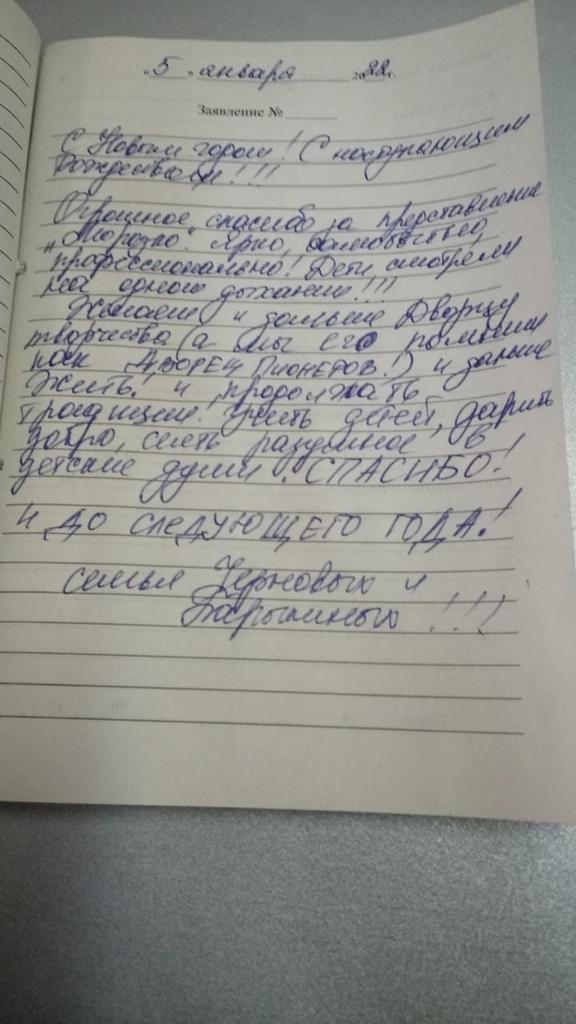 "5" января 2022г.
Заявление №
С Новым годом! С наступающим
Рождеством!!!
Огромное спасибо за представление
"Морозко". Ярко, самобытно,
профессионально! Дети смотрели
на одном дыхании!!!
Желаем и дальше Дворцу
творчества (а мы его помним
как Дворец Пионеров!) и дальше
жить и продолжать
традиции. Учить детей, дарить
добро, сеять разумное в
детские души! СПАСИБО!
И ДО СЛЕДУЮЩЕГО ГОДА!
семья Черновых и
!!!